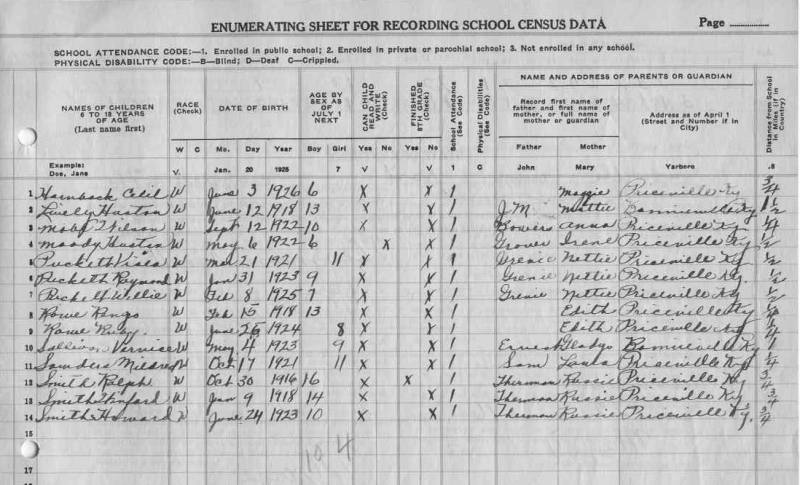 ENUMERATING SHEET FOR RECORDING SCHOOL CENSUS DATA Page
SCHOOL ATTENDANCE CODE:—1. Enrolled in public school; 2. Enrolled in private or parochial school; 3. Not enrolled in any school.
PHYSICAL DISABILITY CODE:—B—Blind; D—Deaf C—Crippled.
NAMES OF CHILDREN 6 TO 18 YEARS OF AGE (Last name first)
RACE (Check)
DATE OF BIRTH
AGE BY SEX AS OF JULY 1 NEXT
CAN CHILD READ AND WRITE (Check)
FINISHED 8TH GRADE (Check)
School Attendance (See Code)
Physical Disabilities (See Code)
NAME AND ADDRESS OF PARENTS OR GUARDIAN
Record first name of father and first name of mother, or full name of mother or guardian
Address as of April 1 (Street and Number if in City)
Distance from School in Miles (If in Country)
W C Mo. Day Year Boy Girl Yes No Yes No Father Mother
Example: Doe, Jane V. Jan. 20 1925 7 V V 1 C John Mary Yarboro .8
1 Hornback Cecil W June 3 1926 6 X X 1 Maggie Priceville Ky 3/4
2 Lively Huston W June 12 1918 13 X X 1 J M Mattie Bonnieville Ky 1 1/2
3 Wilson W Sept 12 1922 10 X X 1 Bowers Anna Priceville Ky 1/4
4 Moody Huston W May 6 1922 6 X X 1 Grover Irene Priceville Ky 1/2
5 Puckett W Mar 21 1921 11 X X 1 Nettie Priceville Ky 1/2
6 Puckett Raymond W Jan 31 1923 9 X X 1 Nettie Priceville Ky. 1/2
7 Puckett Willie W Feb 8 1925 7 X X 1 Nettie Priceville Ky 1/2
8 Rowe W Feb 15 1918 13 X X 1 Edith Priceville Ky 1/4
9 Rowe Ruby W June 26 1924 8 X X 1 Edith Priceville Ky 1/4
10 Vernice W May 4 1923 9 X X 1 Ernest Gladys Bonnieville Ky 1
11 Sanders Mildred W Oct 17 1921 11 X X 1 Sam Laura Priceville Ky 1/4
12 Smith Ralph W Oct 30 1916 16 X X 1 Therman Russie Priceville Ky 3/4
13 Smith W Jan 9 1918 14 X X 1 Therman Russie Priceville Ky 3/4
14 Smith Howard W June 24 1923 10 X X 1 Therman Russie Priceville Ky. 3/4
15
17